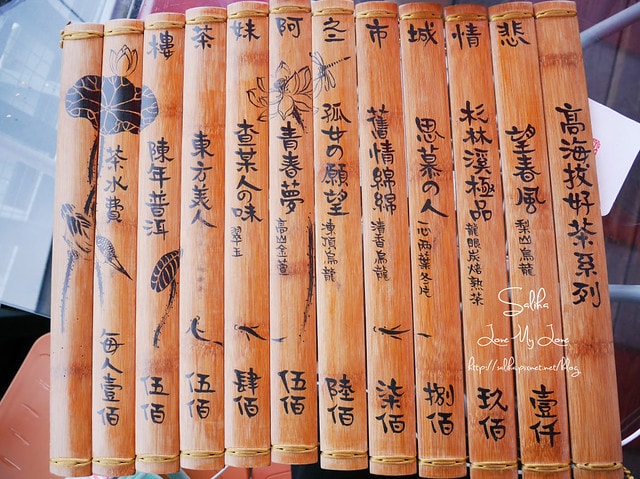 悲情城市之阿妹茶樓
高海拔好茶系列
望春風 梨山烏龍 壹仟
杉林溪極品 龍眼炭焙熟茶 玖佰
思慕の人 一心兩葉冬片 捌佰
舊情綿綿 清香烏龍 柒佰
孤女の願望 凍頂烏龍 陸佰
青春夢 高山金萱 伍佰
查某人の味 翠玉 肆佰
東方美人 伍佰
陳年普洱 伍佰
茶水費 每人壹佰
Saliha
Love My Love
http://saliha.pixnet.net/blog